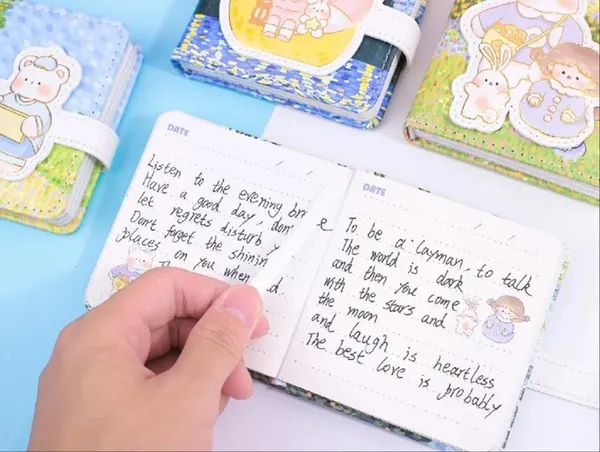 DATE
/ /
Listen to the evening
Have a good day, don'
let regrets disturb y
Don't forget the shinin
places on you when
DATE
/
To be a layman, to talk
The world is dark
and then you come
with the stars and
the moon
and laugh is heartless
The best love is probably